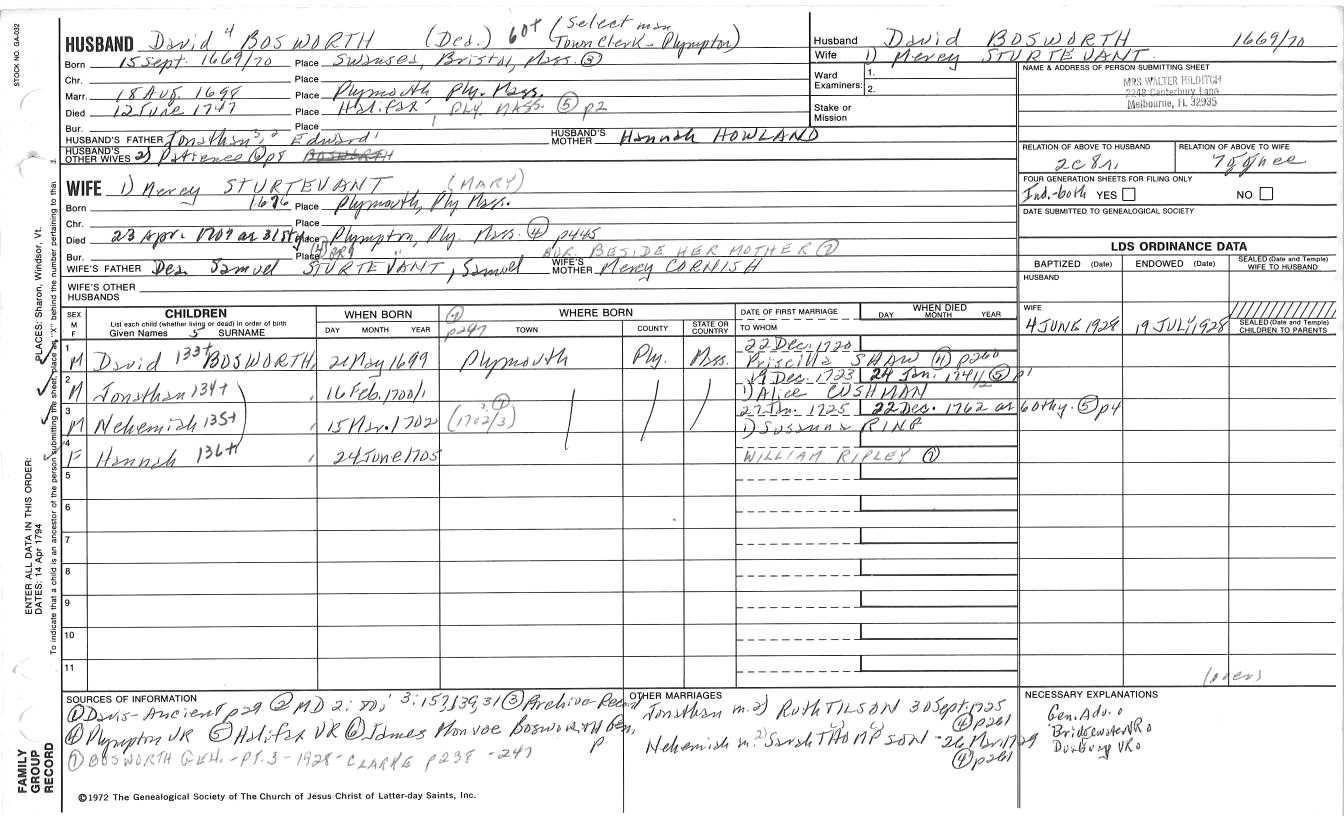 STOCK NO. GA-032
HUSBAND David 4 BOSWORTH (Dea.) 60+ (Select man
Town Clerk - Plympton)
Born 15 Sept. 1669/70 Place Swansea, Bristol, Mass. (3)
Chr. Place
Marr. 18 Aug. 1698 Place Plymouth Ply. Mass.
Died 12 June 1747 Place Halifax, PLY. MASS. (5) p2
Bur. Place
HUSBAND'S FATHER Jonathan 3, 2, Edward 1 HUSBAND'S MOTHER Hannah HOWLAND
HUSBAND'S OTHER WIVES 2) Patience BOSWORTH
Husband David BOSWORTH 1669/70
Wife 1) Mercy STURTEVANT
Ward Examiners: 1.
2.
Stake or Mission
NAME & ADDRESS OF PERSON SUBMITTING SHEET
MRS WALTER HILDITCH
2248 Canterbury Lane
Melbourne, FL 32935
RELATION OF ABOVE TO HUSBAND
RELATION OF ABOVE TO WIFE
FOUR GENERATION SHEETS FOR FILING ONLY
Ind.-both YES NO
DATE SUBMITTED TO GENEALOGICAL SOCIETY
WIFE 1) Mercy STURTEVANT (MARY)
Born 1676 Place Plymouth, Ply Mass.
Chr. Place
Died 23 Apr. 1709 ae 31st yr Place Plympton, Ply. Mass. (4) p445
Bur. Place BUR. BESIDE HER MOTHER (7)
WIFE'S FATHER Dea. Samuel STURTEVANT, Samuel WIFE'S MOTHER Mercy CORNISH
WIFE'S OTHER HUSBANDS
LDS ORDINANCE DATA
BAPTIZED (Date) ENDOWED (Date) SEALED (Date and Temple) WIFE TO HUSBAND
HUSBAND
WIFE
4 JUNE 1928 19 JULY 1928 SEALED (Date and Temple) CHILDREN TO PARENTS
SEX M F
CHILDREN
List each child (whether living or dead) in order of birth
Given Names 5 SURNAME
WHEN BORN
DAY MONTH YEAR
WHERE BORN
(4) p247 TOWN COUNTY STATE OR COUNTRY
DATE OF FIRST MARRIAGE
TO WHOM
WHEN DIED
DAY MONTH YEAR
1 M David 133+ BOSWORTH, 21 May 1699 Plymouth Ply. Mass. 22 Dec. 1720
Priscilla SHAW (4) p260
2 M Jonathan 134+ " 16 Feb. 1700/1 19 Dec. 1723 24 Jan. 1741/2 (5) p1
1) Alice CUSHMAN
3 M Nehemiah 135+ " 15 Mar. 1702 (1702/3) 27 Jan. 1725 22 Dec. 1762 ae 60thy. (5) p4
1) Susanna RING
4 F Hannah 136+ " 24 June 1705
WILLIAM RIPLEY (7)
5
6
7
8
9
10
11
(over)
ENTER ALL DATA IN THIS ORDER:
DATES: 14 Apr 1794
PLACES: Sharon, Windsor, Vt.
To indicate that a child is an ancestor of the person submitting the sheet, place an "X" behind the number pertaining to that
FAMILY GROUP RECORD
SOURCES OF INFORMATION
(1) Davis - Ancient p29 (2) MD 2: 3:153,139,31 (3) Archive Record
(4) Plympton VR (5) Halifax VR (6) James Monroe Bosworth Gen. p
(7) BOSWORTH GEN. - PT. 3 - 1928 - CLARKE p238 - 247
OTHER MARRIAGES
Jonathan m. 2) RUTH TILSON 30 Sept. 1725
(4) p261
Nehemiah m. 2) Sarah THOMPSON - 26 Mar. 1729
(4) p261
NECESSARY EXPLANATIONS
Gen. Adv. 0
Bridgewater VR 0
Duxbury VR 0
©1972 The Genealogical Society of The Church of Jesus Christ of Latter-day Saints, Inc.